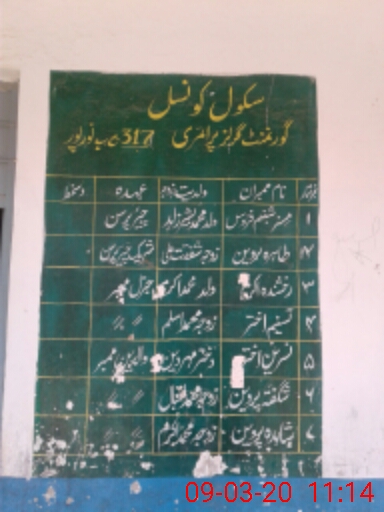 سکول کونسل
گورنمنٹ گرلز پرائمری 317 ج ب نور پور
نمبر شمار نام ممبران ولدیت/زوجہ عہدہ دستخط
۱ مسز شبنم فردوس ولد محمد بشیر زاہد چیئر پرسن
۲ طاہرہ پروین زوجہ شفقت علی شریک چیئر پرسن
۳ رخشندہ ولد جنرل ممبر
۴ تسنیم اختر زوجہ محمد اسلم 〃 〃
۵ نسرین اختر دختر مہر دین والدین ممبر
۶ شگفتہ پروین زوجہ محمد اقبال 〃 〃
۷ شاہدہ پروین زوجہ محمد اکرم 〃 〃
09-03-20 11:14